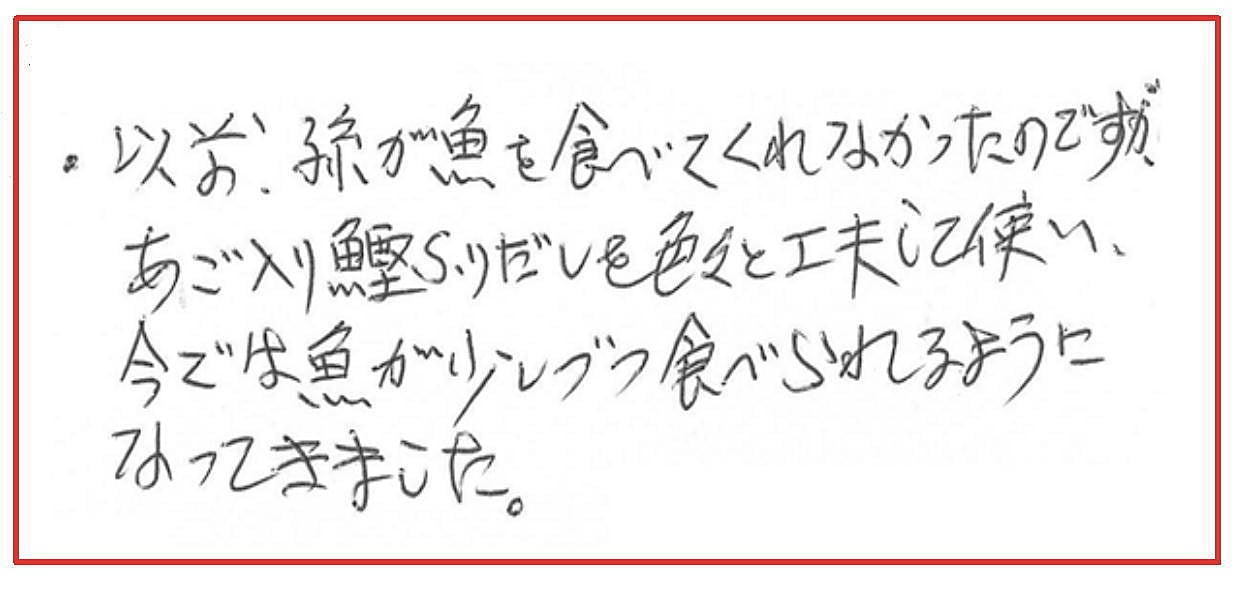 ・以前、孫が魚を食べてくれなかったのですが、
あご入り鰹ふりだしを色々と工夫して使い、
今では魚が少しづつ食べられるように
なってきました。